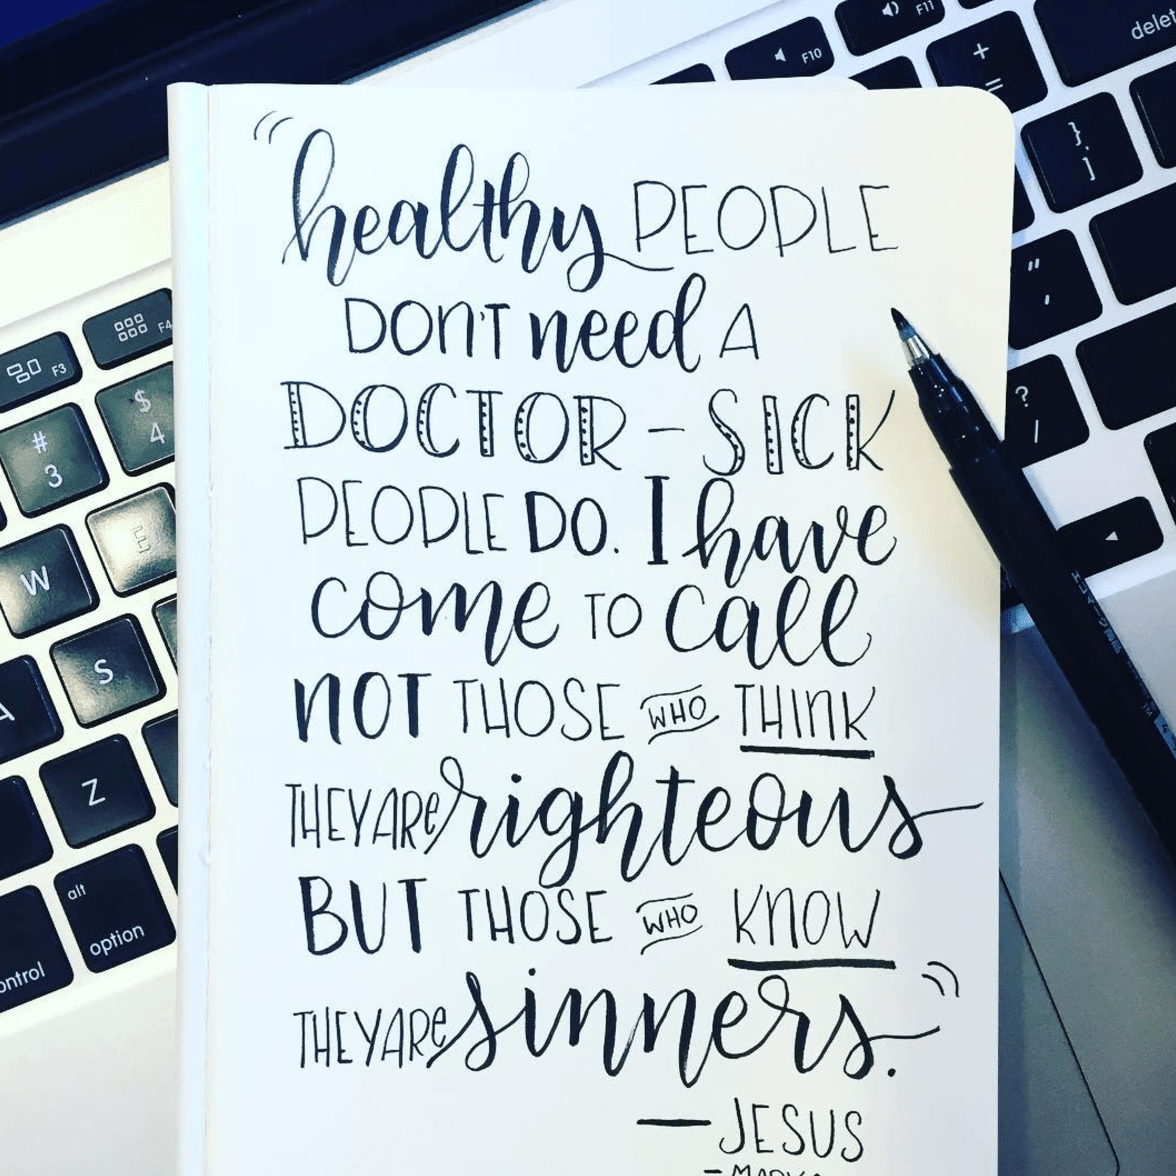 "healthy PEOPLE
DON'T need A
DOCTOR – SICK
PEOPLE DO. I have
come TO call
NOT THOSE WHO THINK
THEY ARE righteous
BUT THOSE WHO KNOW
THEY ARE sinners."
— JESUS
F10
F11
delete
+
=
}
]
"
'
?
/
F3
F4
#
3
$
4
W
E
A
S
Z
alt
option
control